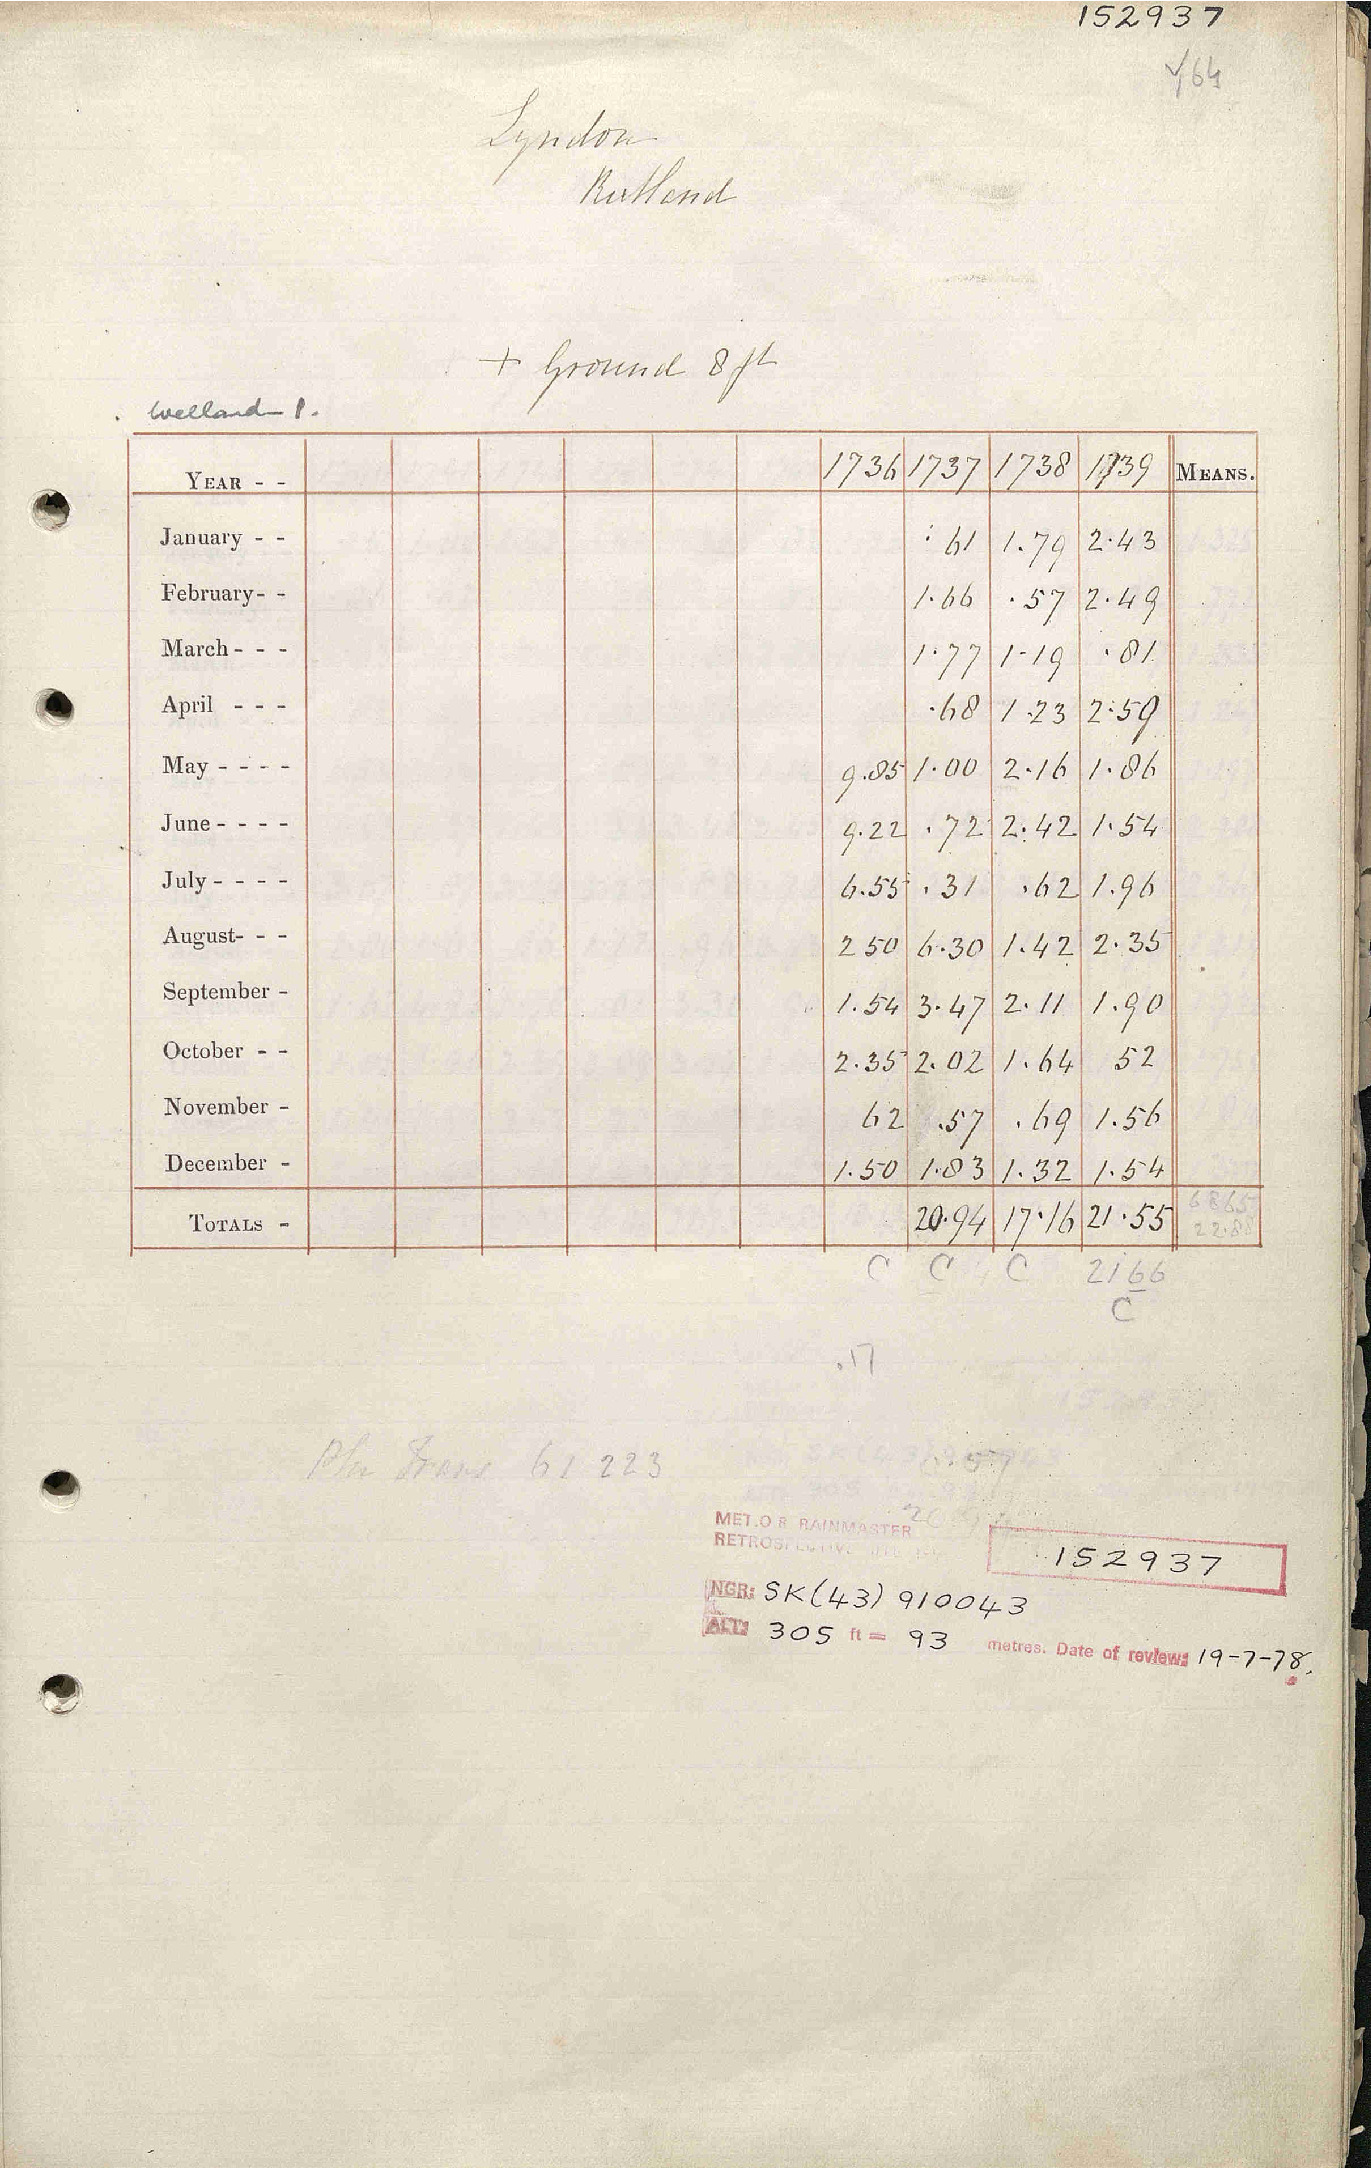 152937
√64
Lyndon
Rutland
+ Ground 8 ft
Welland P.
YEAR - - 1736 1737 1738 1739 MEANS.
January - - .61 1.79 2.43
February- - 1.66 .57 2.49
March - - - 1.77 1.19 .81
April - - - .68 1.23 2.59
May - - - - 9.85 1.00 2.16 1.86
June - - - - 9.22 .72 2.42 1.54
July - - - - 6.55 .31 .62 1.96
August- - - 2 50 6.30 1.42 2.35
September - 1.54 3.47 2.11 1.90
October - - 2.35 2.02 1.64 52
November - 62 .57 .69 1.56
December - 1.50 1.83 1.32 1.54
TOTALS - 20.94 17.16 21.55 6865
22.88
C C C 2166
C
.17
Phil Trans 61 223
MET.O 8 RAINMASTER
RETROSPECTIVE
152937
NGR: SK(43) 910043
ALT: 305 ft = 93 metres. Date of review: 19-7-78.